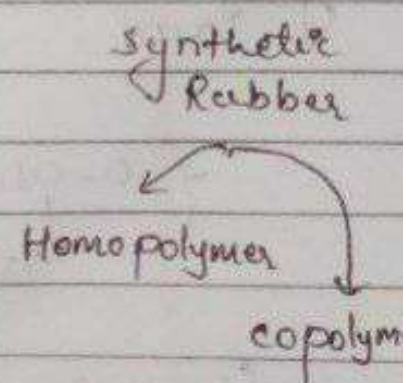 Synthetic
Rubber
Homopolymer
copolym